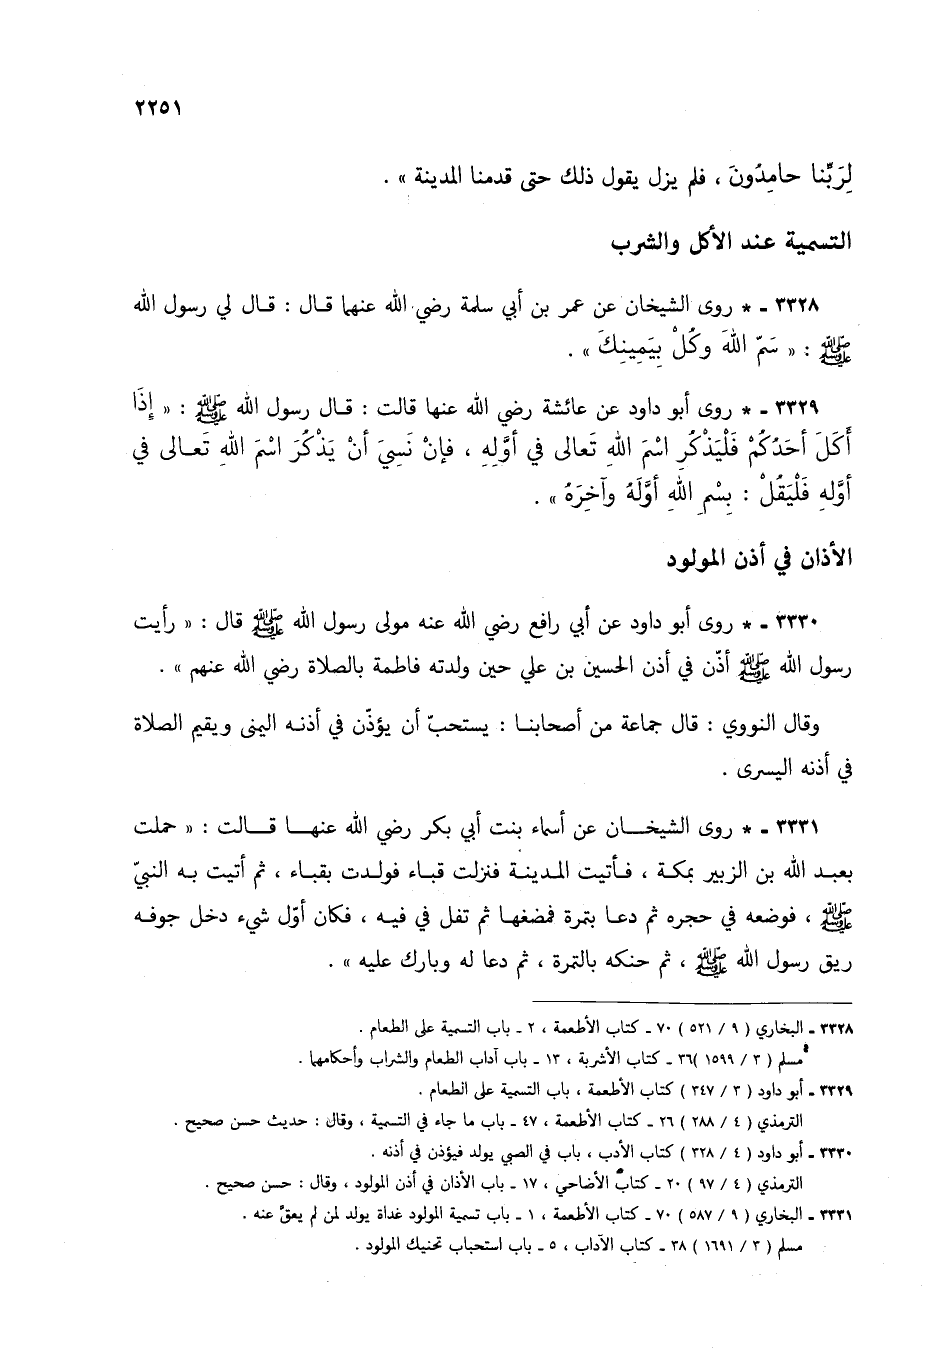 ٢٢٥١
لِرَبِّنا حامِدُونَ ، فلم يزل يقول ذلك حتى قدمنا المدينة » .
التسمية عند الأكل والشرب
٣٣٢٨ - * روى الشيخان عن عمر بن أبي سلمة رضي الله عنهما قال : قال لي رسول الله
ﷺ : « سَمِّ اللهَ وكُلْ بِيَمِينِكَ » .
٣٣٢٩ - * روى أبو داود عن عائشة رضي الله عنها قالت : قال رسول الله ﷺ : « إِذَا
أَكَلَ أحَدُكُمْ فَلْيَذْكُرِ اسْمَ اللهِ تَعالى في أوَّلِهِ ، فإنْ نَسِيَ أنْ يَذْكُرَ اسْمَ اللهِ تَعالى في
أوَّلِهِ فَلْيَقُلْ : بِسْمِ اللهِ أوَّلَهُ وآخِرَهُ » .
الأذان في أذن المولود
٣٣٣٠ - * روى أبو داود عن أبي رافع رضي الله عنه مولى رسول الله ﷺ قال : « رأيت
رسول الله ﷺ أذّن في أذن الحسين بن علي حين ولدته فاطمة بالصلاة رضي الله عنهم » .
وقال النووي : قال جماعة من أصحابنا : يستحبّ أن يؤذّن في أذنه اليمنى ويقيم الصلاة
في أذنه اليسرى .
٣٣٣١ - * روى الشيخان عن أسماء بنت أبي بكر رضي الله عنهما قالت : « حملت
بعبد الله بن الزبير بمكة ، فأتيت المدينة فنزلت قباء فولدت بقباء ، ثم أتيت به النبيّ
ﷺ ، فوضعه في حجره ثم دعا بتمرة فمضغها ثم تفل في فيه ، فكان أوّل شيء دخل جوفه
ريق رسول الله ﷺ ، ثم حنكه بالتمرة ، ثم دعا له وبارك عليه » .
٣٣٢٨ - البخاري ( ٩ / ٥٢١ ) ٧٠ - كتاب الأطعمة ، ٢ - باب التسمية على الطعام .
مسلم ( ٣ / ١٥٩٩ )٣٦ - كتاب الأشربة ، ١٣ - باب آداب الطعام والشراب وأحكامها .
٣٣٢٩ - أبو داود ( ٣ / ٣٤٧ ) كتاب الأطعمة ، باب التسمية على الطعام .
الترمذي ( ٤ / ٢٨٨ ) ٢٦ - كتاب الأطعمة ، ٤٧ - باب ما جاء في التسمية ، وقال : حديث حسن صحيح .
٣٣٣٠ - أبو داود ( ٤ / ٣٢٨ ) كتاب الأدب ، باب في الصبي يولد فيؤذن في أذنه .
الترمذي ( ٤ / ٩٧ ) ٢٠ - كتاب الأضاحي ، ١٧ - باب الأذان في أذن المولود ، وقال : حسن صحيح .
٣٣٣١ - البخاري ( ٩ / ٥٨٧ ) ٧٠ - كتاب الأطعمة ، ١ - باب تسمية المولود غداة يولد لمن لم يعق عنه .
مسلم ( ٣ / ١٦٩١ ) ٣٨ - كتاب الآداب ، ٥ - باب استحباب تحنيك المولود .